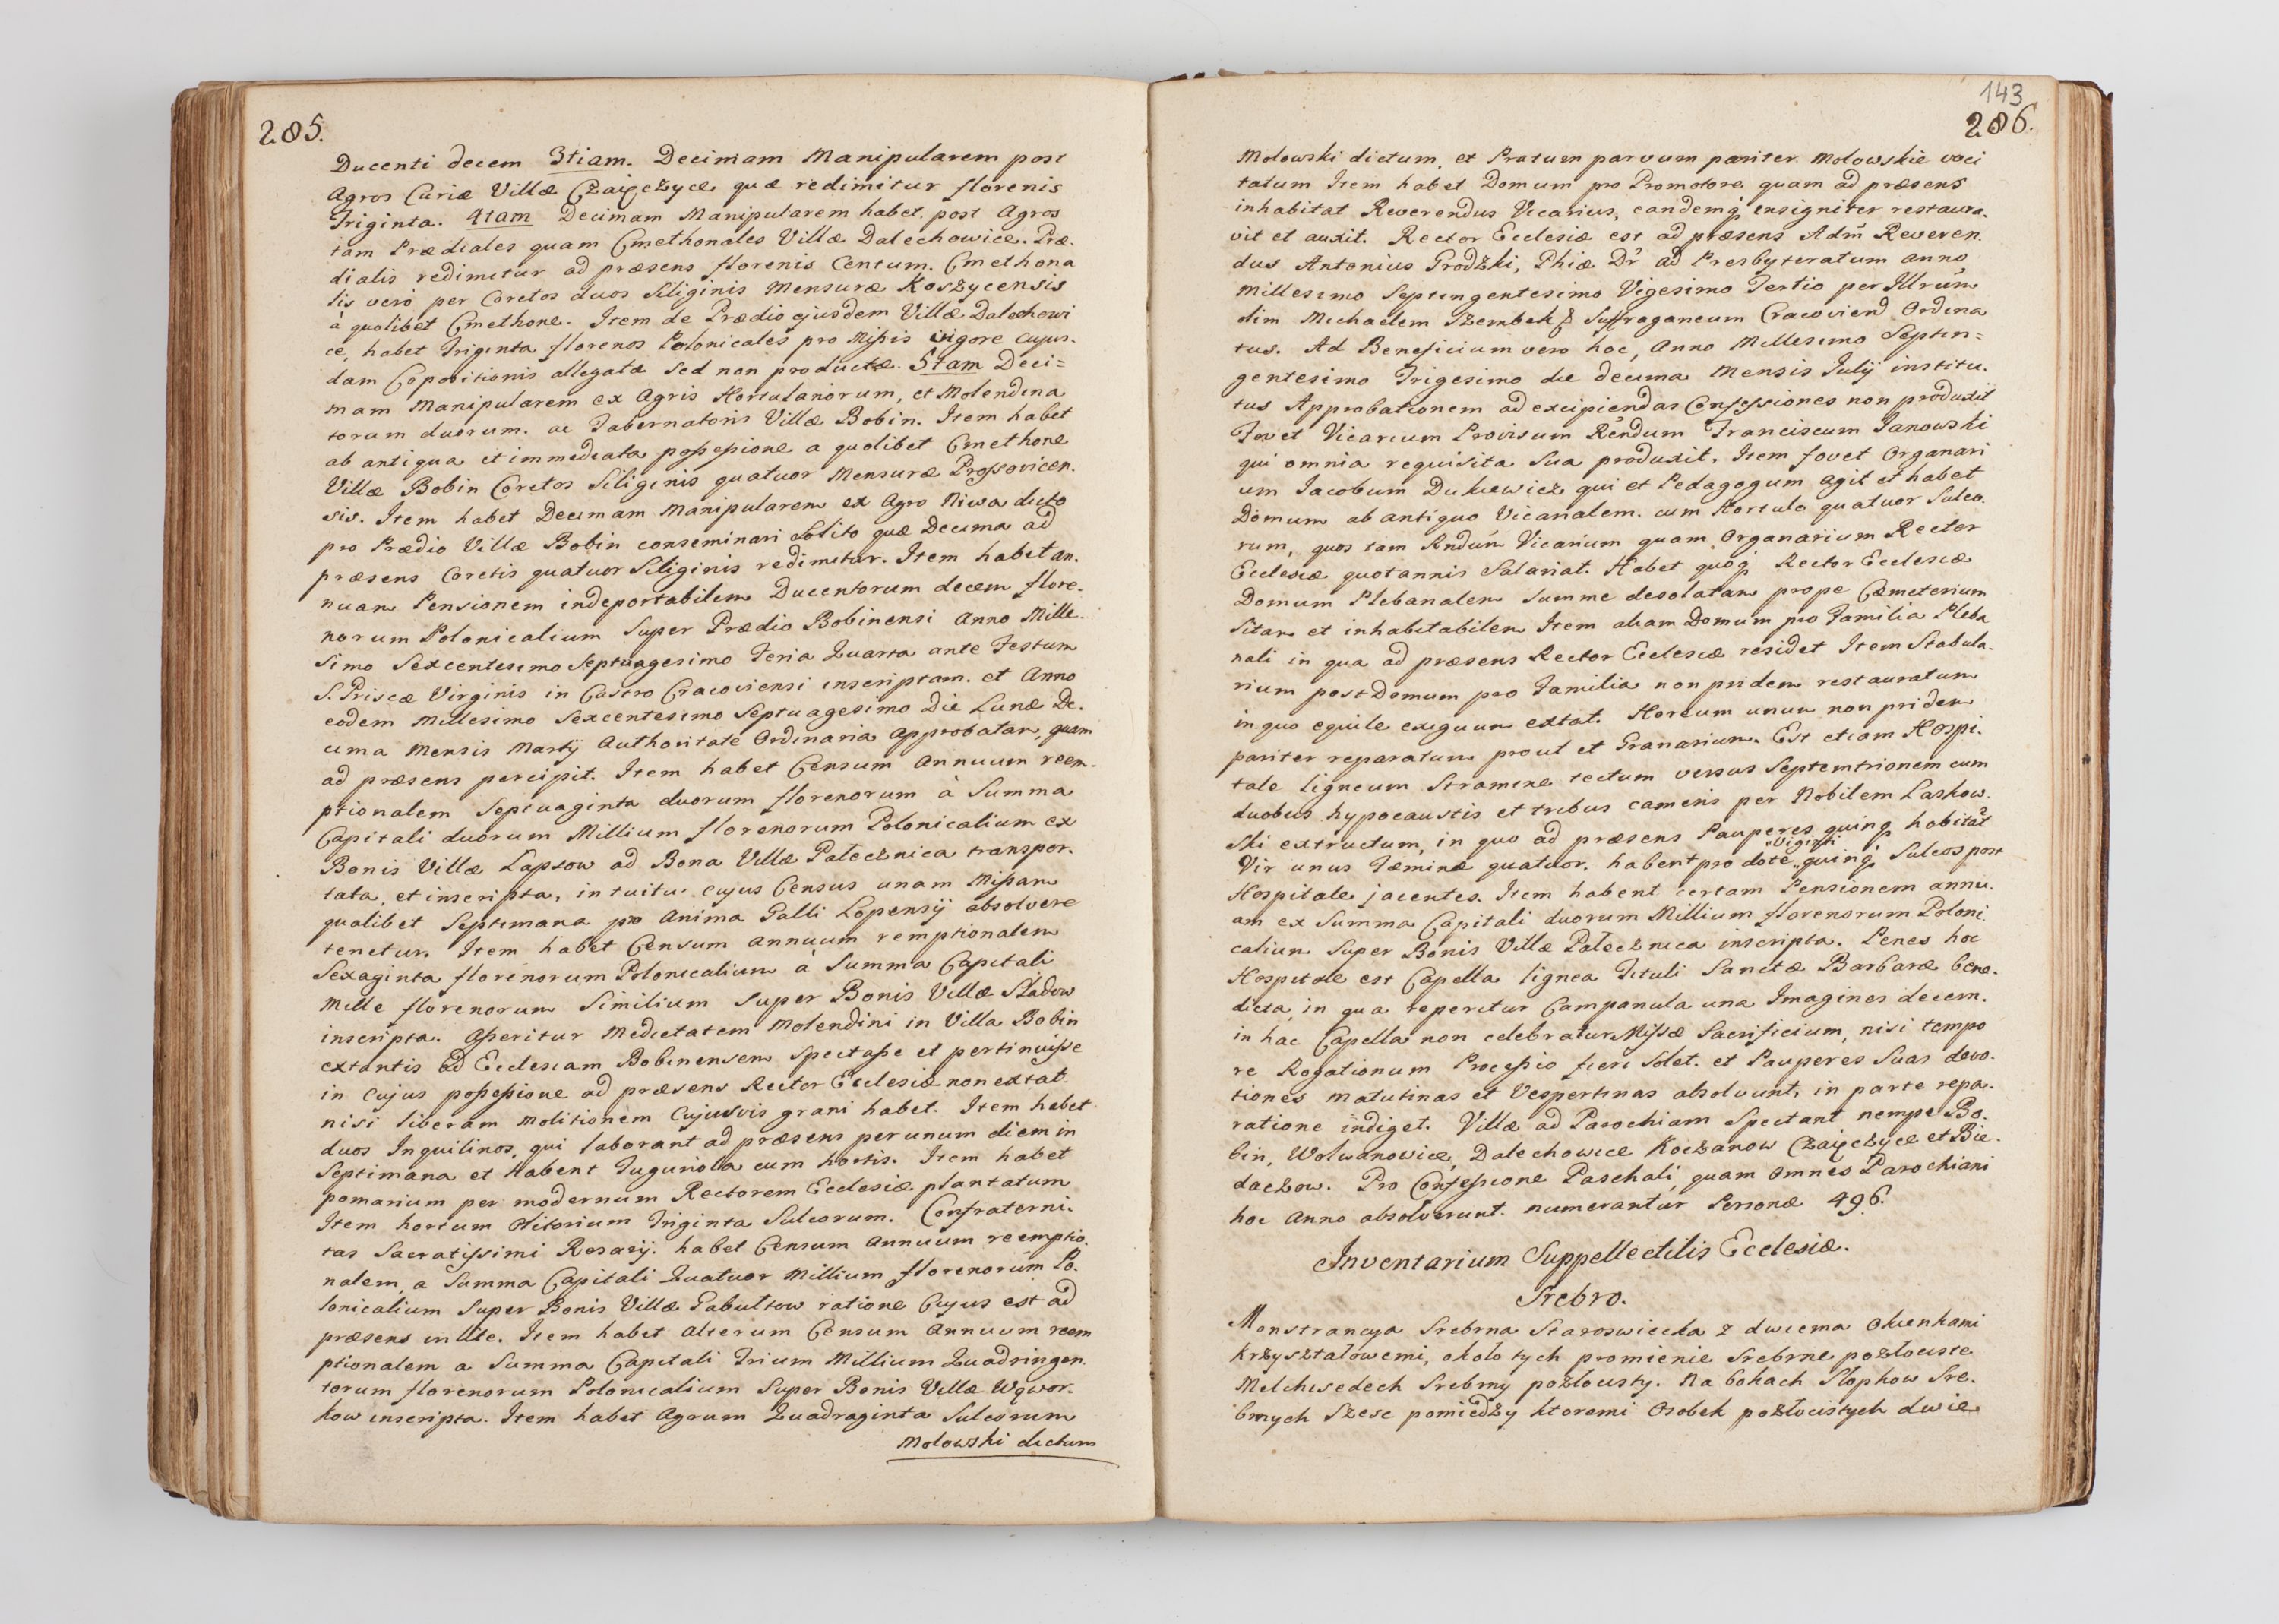 285.
Ducenti decem 3tiam. Decimam Manipularem post
Agros Curiæ Villæ Czaięczyce quæ redimitur florenis
Triginta. 4tam Decimam Manipularem habet post Agros
tam Prædiales quam Cmethonales Villæ Dalechowice. Præ-
dialis redimitur ad præsens florenis Centum. Cmethona
lis vero per Coretos duos Siliginis Mensuræ Koszycensis
à quolibet Cmethone. Item de Prædio ejusdem Villæ Dalechowi
ce, habet Triginta florenos Polonicales pro Missis vigore cujus-
dam Copositionis allegatæ sed non productæ. 5tam Deci=
mam Manipularem ex Agris Hortulanorum, et Molendina
torum duorum. ac Tabernatoris Villæ Bobin. Item habet
ab antiqua et immediata possessione a quolibet Cmethone
Villæ Bobin Coretos Siliginis quatuor Mensuræ Prossovicen.
sis. Item habet Decimam Manipularem ex Agro Niwa dicto
pro Prædio Villæ Bobin conseminari Solito quæ Decima ad
præsens Coretis quatuor Siliginis redimitur. Item habet an.
nuam Pensionem indeportabilem Ducentorum decem flore.
norum Polonicalium Super Prædio Bobinensi Anno Mille.
simo Sexcentesimo Septuagesimo Feria Quarta ante Festum
S. Priscæ Virginis in Castro Cracoviensi inscriptam. et Anno
eodem Millesimo Sexcentesimo Septuagesimo Die Lunæ De.
cima Mensis Martij Authoritate Ordinaria Approbatam, quam
ad præsens percipit. Item habet Censum Annuum reem-
ptionalem Septuaginta duorum florenorum à Summa
Capitali duorum Millium florenorum Polonicalium ex
Bonis Villæ Lapsow ad Bona Villæ Pałecznica transpor.
tata, et inscripta, intuitu cujus Census unam Missam
qualibet Septimana pro Anima Galli Lopensij absolvere
tenetur. Item habet Censum annuum remptionalem
Sexaginta florenorum Polonicalium à Summa Capitali
Mille florenorum Similium Super Bonis Villæ Sładow
inscripta. Asseritur Medietatem Molendini in Villa Bobin
extantis ad Ecclesiam Bobinensem Spectasse et pertinuisse
in cujus possessione ad præsens Rector Ecclesiæ non extat.
nisi liberam molitionem cujusvis grani habet. Item habet
duos Inquilinos, qui laborant ad præsens per unum diem in
Septimana et habent Tuguriola cum hortis. Item habet
pomarium per modernum Rectorem Ecclesiæ plantatum
Item hortum Olitorium Triginta Sulcorum. Confraterni.
tas Sacratissimi Rosarij habet Censum Annuum reemptio.
nalem, a Summa Capitali Quatuor Millium florenorum Po.
lonicalium Super Bonis Villæ Gabultow ratione cujus est ad
præsens in lite. Item habet alterum Censum Annuum reem
ptionalem a Summa Capitali Trium Millium Quadringen.
torum florenorum Polonicalium Super Bonis Villæ Wąwor.
kow inscripta. Item habet Agrum Quadraginta Sulcorum
Molowski dictum
143
286.
Molowski dictum, et Pratum parvum pariter Molowskie voci
tatum Item habet Domum pro Promotore quam ad præsens
inhabitat Reverendus Vicarius, eandemq́ insigniter restaura.
vit et auxit. Rector Ecclesiæ est ad præsens Adm̃ Reveren.
dus Antonius Grodzki, Phiæ Dr̃ ad Presbyteratum Anno
Millesimo Septingentesimo Vigesimo Tertio per Illrum̃
olim Michaelem Szembek Suffraganeum Cracovien̄ Ordina
tus. Ad Beneficium vero hoc, Anno Millesimo Septin=
gentesimo Trigesimo die decima Mensis Julij institu.
tus Approbationem ad excipiendas Confessiones non produxit
Fovet Vicarium Provisum Rendum̃ Franciscum Janowski
qui omnia requisita Sua produxit. Item fovet Organari
um Jacobum Dukiewicz qui et Pedagogum agit et habet
Domum ab antiquo Vicarialem. cum Hortulo quatuor Sulco.
rum, quos tam Rndum̃ Vicarium quam Organarium Rector
Ecclesiæ quotannis Salariat. Habet quoq́ Rector Ecclesiæ
Domum Plebanalem Summe desolatam prope Cæmeterium
Sitam et inhabitabilem Item aliam Domum pro Familia Pleba
nali in qua ad præsens Rector Ecclesiæ residet Item Stabula.
rium post Domum pro Familia non pridem restauratum
in quo equile exiguum extat. Horeum unum non pridem
pariter reparatum prout et Granarium. Est etiam Hospi.
tale ligneum Stramine tectum versus Septemtrionem cum
duobus hypocaustis et tribus cameris per Nobilem Laskow.
ski extructum, in quo ad præsens Pauperes quinq́ habitãt
Vir unus Fæminæ quatuor, habent pro dote „Viginti„ quinq́ Sulcos post
Hospitale jacentes. Item habent certam Pensionem annu.
am ex Summa Capitali duorum Millium florenorum Poloni
calium Super Bonis Villæ Pałecznica inscripta. Penes hoc
Hospitale est Capella lignea Tituli Sanctæ Barbaræ bene.
dicta, in qua reperitur Campanula una Imagines decem.
in hac Capella non celebratur Missæ Sacrificium, nisi tempo
re Rogationum Processio fieri solet. et Pauperes Suas devo.
tiones matutinas et Vespertinas absolvunt, in parte repa.
ratione indiget. Villæ ad Parochiam Spectant nempe Bo.
bin, Wolwanowice, Dalechowice Koczanow Czaięczyce et Bie.
daczow. Pro Confessione Paschali, quam omnes Parochiani
hoc Anno absolverunt. numerantur Personæ 496.
Inventarium Suppellectilis Ecclesiæ.
Srebro.
Monstrancya Srebrna Staroswiecka z dwiema Okienkami
krzyształowemi, około tych promienie Srebrne pozłociste
Melchisedech Srebrny pozłocisty. Na bokach Słopkow Sre.
brnych Szesc pomiedzy ktoremi Osobek pozłocistych dwie